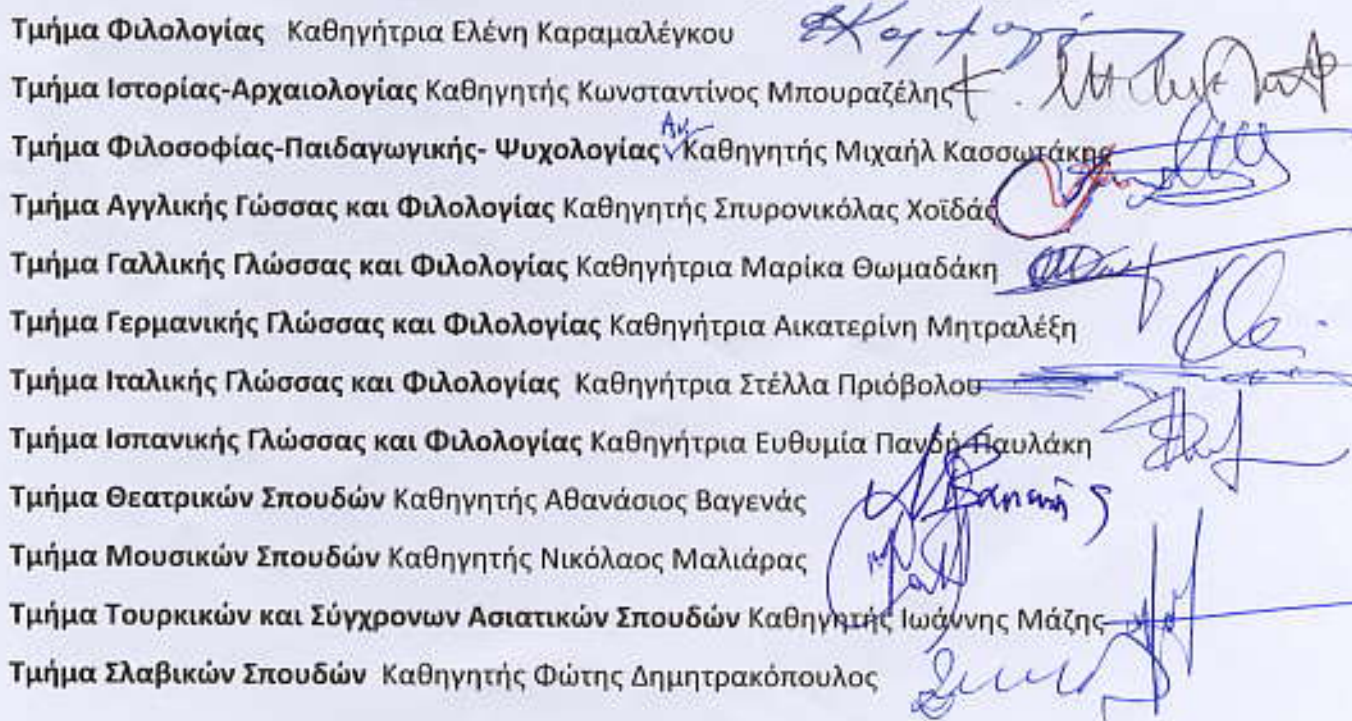 Τμήμα Φιλολογίας Καθηγήτρια Ελένη Καραμαλέγκου
Τμήμα Ιστορίας-Αρχαιολογίας Καθηγητής Κωνσταντίνος Μπουραζέλης
Τμήμα Φιλοσοφίας-Παιδαγωγικής- Ψυχολογίας Αν. Καθηγητής Μιχαήλ Κασσωτάκης
Τμήμα Αγγλικής Γώσσας και Φιλολογίας Καθηγητής Σπυρονικόλας Χοϊδάς
Τμήμα Γαλλικής Γλώσσας και Φιλολογίας Καθηγήτρια Μαρίκα Θωμαδάκη
Τμήμα Γερμανικής Γλώσσας και Φιλολογίας Καθηγήτρια Αικατερίνη Μητραλέξη
Τμήμα Ιταλικής Γλώσσας και Φιλολογίας Καθηγήτρια Στέλλα Πριόβολου
Τμήμα Ισπανικής Γλώσσας και Φιλολογίας Καθηγήτρια Ευθυμία Πανδή-Παυλάκη
Τμήμα Θεατρικών Σπουδών Καθηγητής Αθανάσιος Βαγενάς
Τμήμα Μουσικών Σπουδών Καθηγητής Νικόλαος Μαλιάρας
Τμήμα Τουρκικών και Σύγχρονων Ασιατικών Σπουδών Καθηγητής Ιωάννης Μάζης
Τμήμα Σλαβικών Σπουδών Καθηγητής Φώτης Δημητρακόπουλος